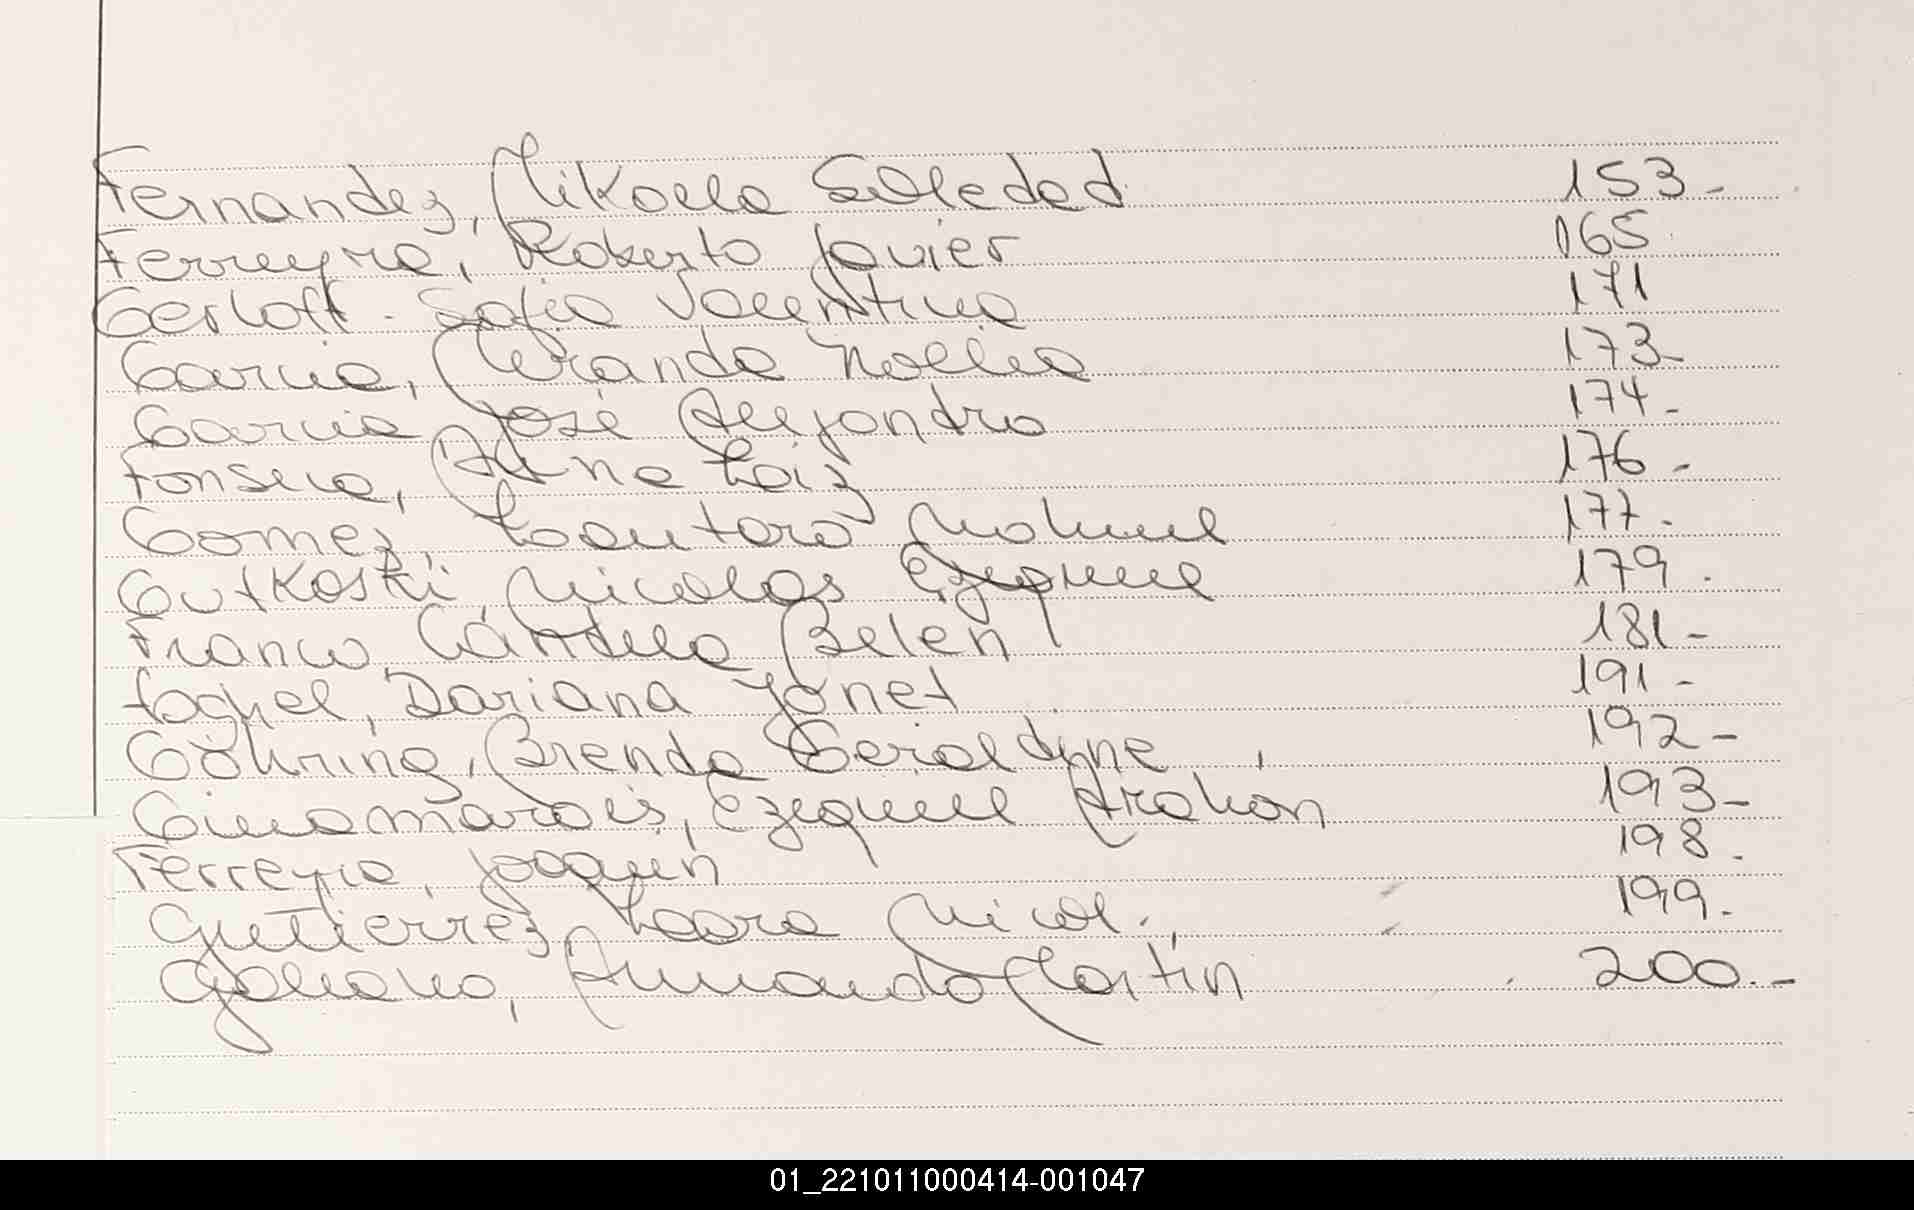 Fernandez, Mikaela Soledad 153-
Ferreyra, Roberto Javier 165
Gerloff - Sofia Valentina 171
Garcia, Miranda Noelia 173-
Garcia José Alejandro 174-
Fonseca, Ana Laiz 176-
Gomez, Lautaro Nahuel 177-
Gutkoski Nicolas Ezequiel 179.
Franco, Cándela Belén 181-
Foguel, Dariana Janet 191-
Göhring, Brenda Geraldyne 192-
Ezequiel 193-
Ferreyra, Joaquin 198-
Gutierrez Laara Nicol. 199-
Galeano, Armando Martin 200.-
01_221011000414-001047